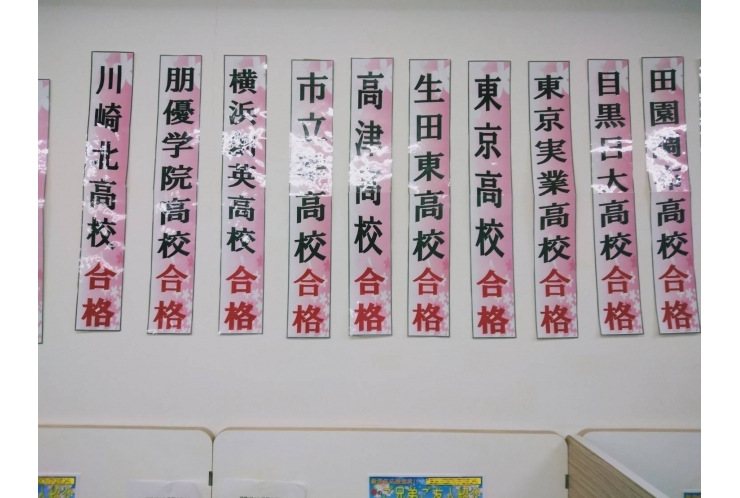 田園調布高校合格
目黒日大高校合格
東京実業高校合格
東京高校合格
生田東高校合格
高津高校合格
市立高校合格
横浜創英高校合格
朋優学院高校合格
川崎北高校合格